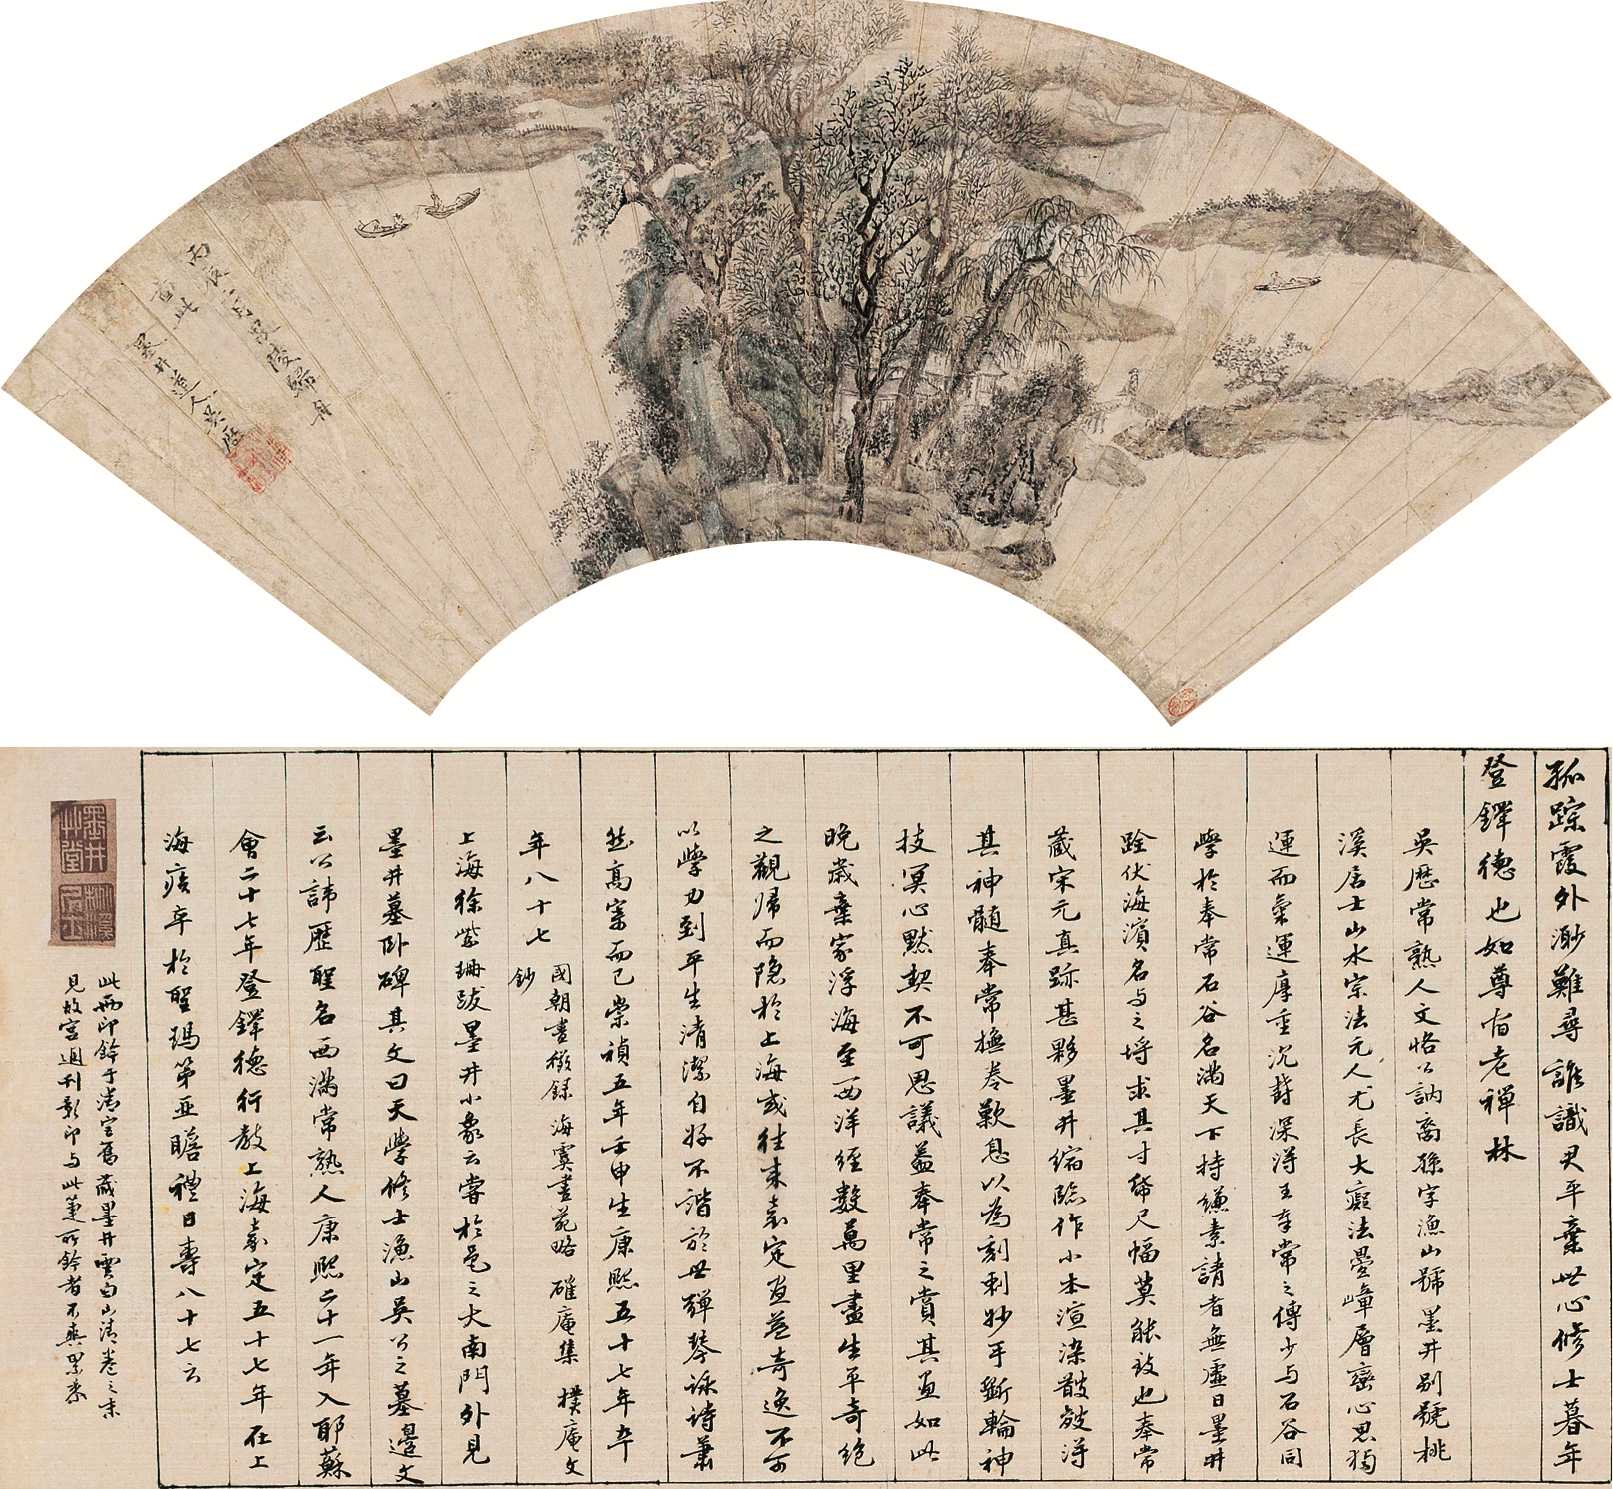 丙辰八月毘陵歸舟
畫此
墨井道人吳歷
孤踪霞外渺難尋誰識君平棄世心修士暮年
登鐸德也如尊宿老禪林
吳歷常熟人文恪公訥裔孫字漁山號墨井別號桃
溪居士山水宗法元人尤長大癡法疊嶂層巒心思獨
運而氣運厚重沉鬱深得王奉常之傳少与石谷同
學於奉常石谷名滿天下持縑素請者無虛日墨井
跧伏海濱名与之埒求其寸縑尺幅莫能致也奉常
藏宋元真跡甚夥墨井縮臨作小本渲染皴皵得
其神髓奉常撫卷歎息以為刻剩妙手斲輪神
技冥心默契不可思議蓋奉常之賞其画如此
晚歲棄家浮海至西洋經數萬里盡生平奇絕
之觀歸而隱於上海或往来嘉定画益奇逸不可
以學力到平生清潔自好不諧於世彈琴詠詩蕭
然高寄而已崇禎五年壬申生康熙五十七年卒
年八十七 國朝畫徵錄 海虞畫苑略 確庵集 樸庵文
鈔
上海徐紫珊跋墨井小象云嘗於邑之大南門外見
墨井墓卧碑其文曰天學修士漁山吳公之墓邊文
云公諱歷聖名西滿常熟人康熙二十一年入耶蘇
會二十七年登鐸德行教上海嘉定五十七年在上
海疾卒於聖瑪第亞瞻禮日壽八十七云
墨井
草堂
桃溪
居士
此兩印鈐于清宮舊藏墨井雲白山清卷之末
見故宮週刊影印与此箑所鈐者不爽累黍